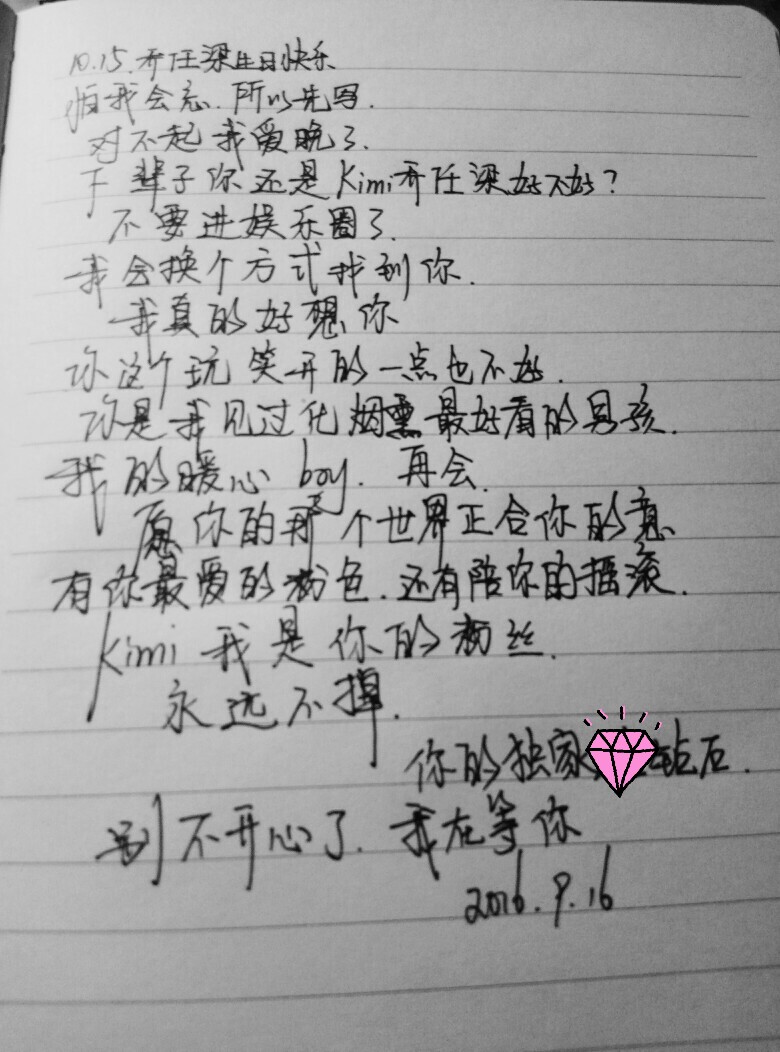 10.15.乔任梁生日快乐
怕我会忘.所以先写.
对不起我爱晚了.
下辈子你还是Kimi乔任梁.好不好?
不要进娱乐圈了.
我会换个方式找到你.
我真的好想你
你这个玩笑开的一点也不好.
你是我见过化烟熏最好看的男孩.
我的暖心boy.再会.
愿你的那个世界正合你的意
有你最爱的粉色.还有陪你的摇滚.
Kimi我是你的粉丝.
永远不掉.
你的独家钻石.
别不开心了.我在等你
2016.9.16